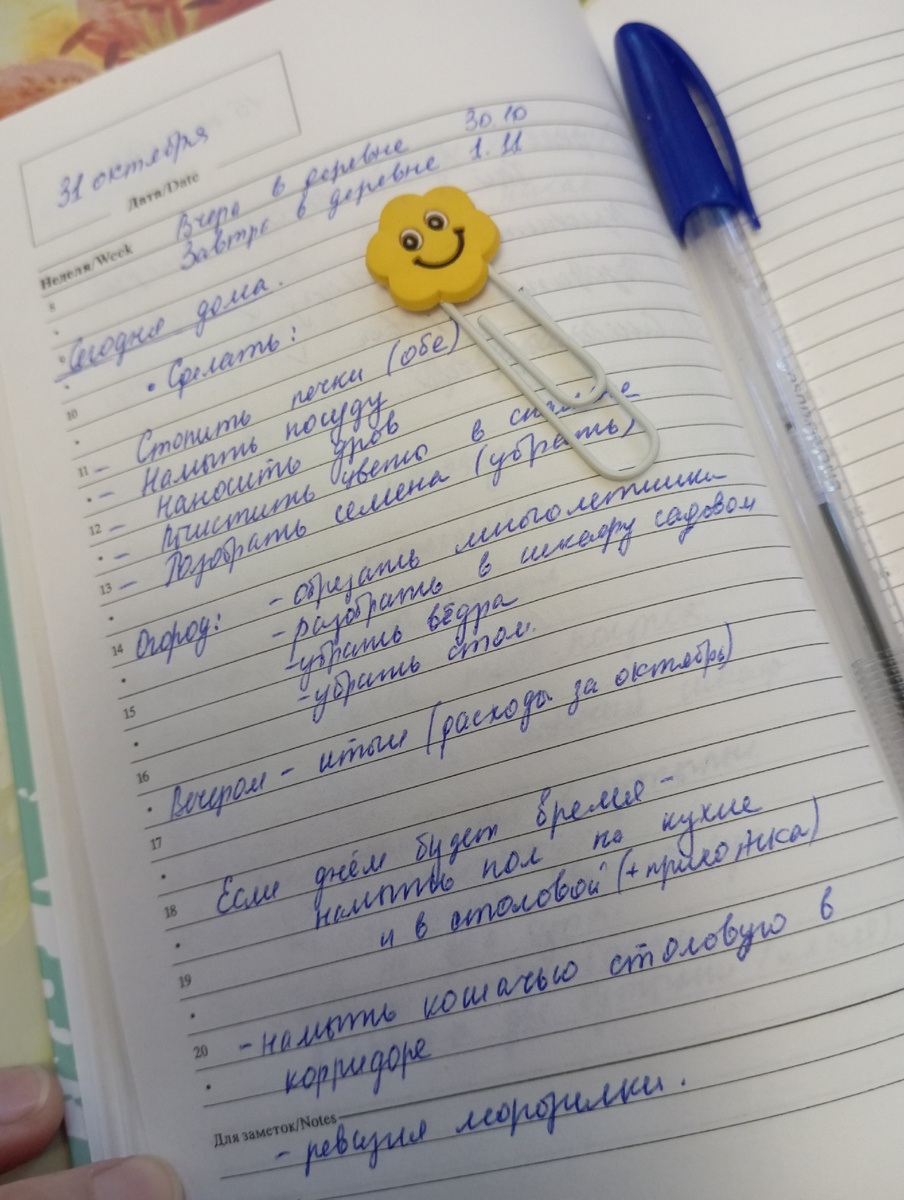 31 октября
Дата/Date
Вчера в деревне 30.10
Завтра в деревне 1.11
Неделя/Week
8
Сегодня дома.
• Сделать:
10
- Стопить печки (обе)
11
- Намыть посуду
- Наносить дров
12
- Очистить цветы в
- Разобрать семена (убрать)
13
Огород: - обрезать многолетники
14
- разобрать в шкафу садовом
- убрать вёдра
- убрать стол.
15
16
Вечером - итоги (расходы за октябрь)
17
Если днём будет время -
18
намыть пол на кухне
и в столовой (+ прихожка)
19
- намыть кошачью столовую в
20
корридоре
Для заметок/Notes
- ревизия морозилки.